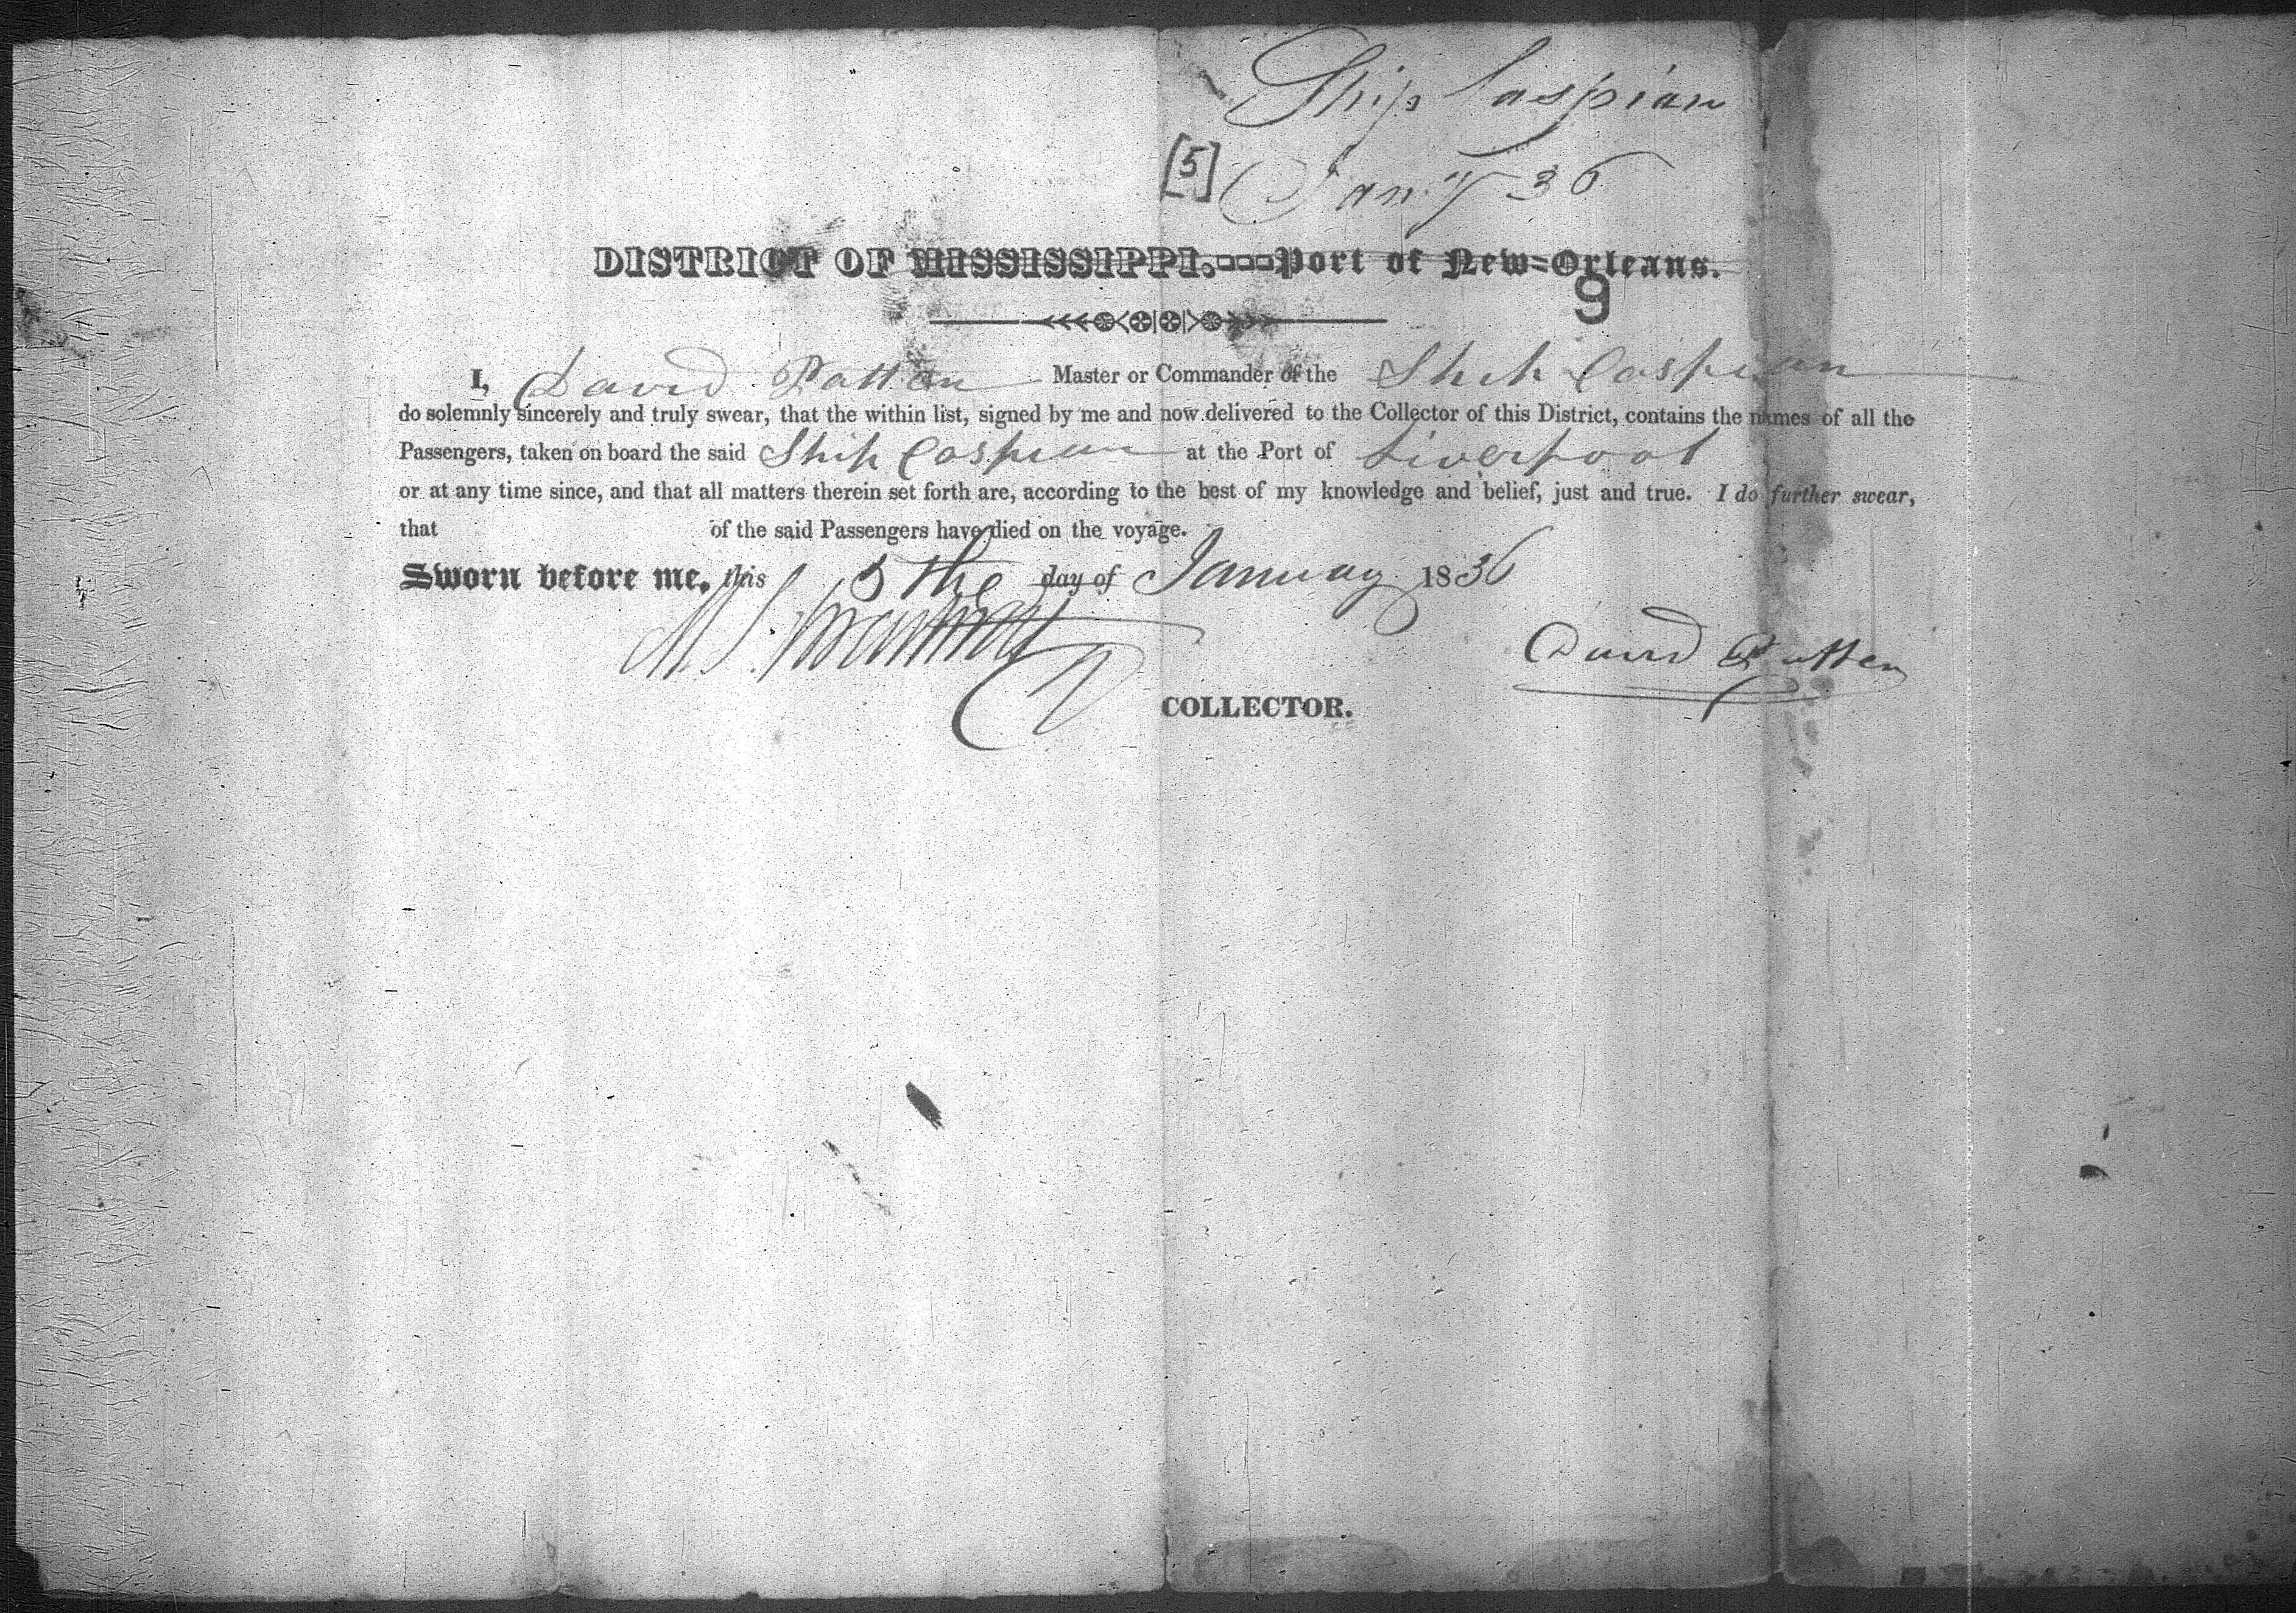 Ship Caspian
[5] Jan.y 36
DISTRICT OF MISSISSIPPI.---Port of New=Orleans.
9
I, David Patten Master or Commander of the Ship Caspian
do solemnly sincerely and truly swear, that the within list, signed by me and now delivered to the Collector of this District, contains the names of all the
Passengers, taken on board the said Ship Caspian at the Port of Liverpool
or at any time since, and that all matters therein set forth are, according to the best of my knowledge and belief, just and true. I do further swear,
that of the said Passengers have died on the voyage.
Sworn before me, this 5 the day of January 1836
David Patten
COLLECTOR.